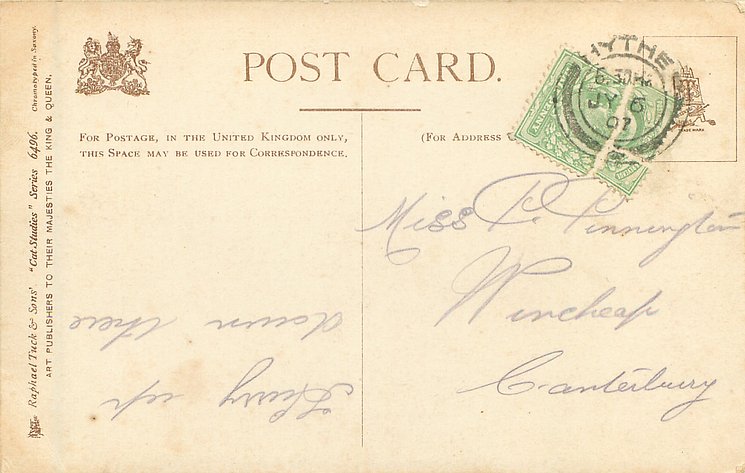 POST CARD.
FOR POSTAGE, IN THE UNITED KINGDOM ONLY,
THIS SPACE MAY BE USED FOR CORRESPONDENCE.
(FOR ADDRESS
HYTHE
6.30PM
JY 6
07
TRADE MARK
Miss P. Pennington
Wincheap
Canterbury
Hurry up
down there
Raphael Tuck & Sons' "Cat-Studies" Series 6496.
ART PUBLISHERS TO THEIR MAJESTIES THE KING & QUEEN.
Chromotyped in Saxony.